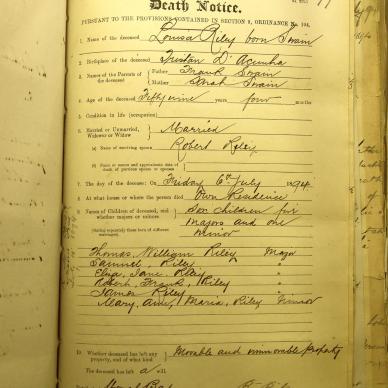 Death Notice.
PURSUANT TO THE PROVISIONS CONTAINED IN SECTION 9, ORDINANCE No. 104.
1. Name of the deceased Louisa Riley born Swain
2. Birthplace of the deceased Tristan D'Acunha
3. Names of the Parents of the deceased
Father Frank Swain
Mother Swain
4. Age of the deceased Fifty nine years four months
5. Condition in life (occupation)
6. Married or Unmarried, Widower or Widow Married
(a) Name of surviving spouse Robert Riley
(b) Name or names and approximate date of death of previous spouse or spouses
7. The day of the decease: On Friday 6th July 1894
8. At what house or where the person died Own Residence
9. Names of Children of deceased, and whether majors or minors
Six children five
majors and one
minor
(Stating separately those born of different marriages).
Thomas, William Riley Major
Samuel Riley "
Eliza, Jane, Riley "
Robert, Frank, Riley "
James Riley "
Mary, Ann, Maria, Riley Minor
10. Whether deceased has left any property, and of what kind Movable and immovable property
The deceased has left a will